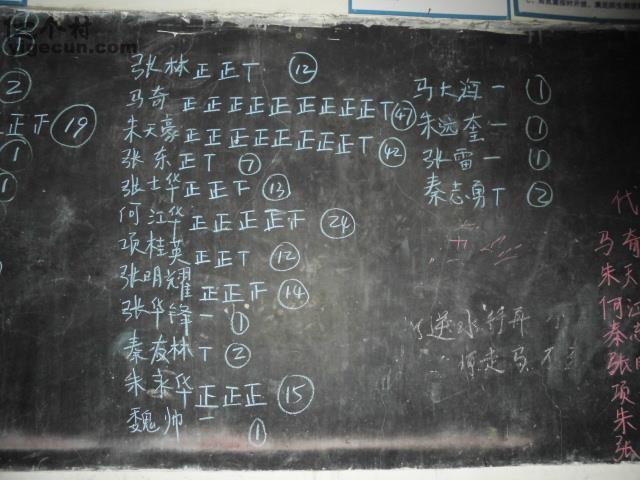 Yigecun.com
②
正正 ⑲
①
①
张林 正正丅 ⑫
马奇 正正正正正正正正正丅 ㊼
朱天豪 正正正正正正正正丅 ㊷
张东 正丅 ⑦
张士华 正正下 ⑬
何江华 正正正正 ㉔
项桂英 正正丅 ⑫
张明耀 正正 ⑭
张华锋 一 ①
秦友林 丅 ②
朱永华 正正正 ⑮
魏帅 一 ①
马大海 一 ①
朱远奎 一 ①
张雷 一 ①
秦志勇 丅 ②
逆水行舟
代
马奇
朱天
何江
秦志
张
项
朱
张